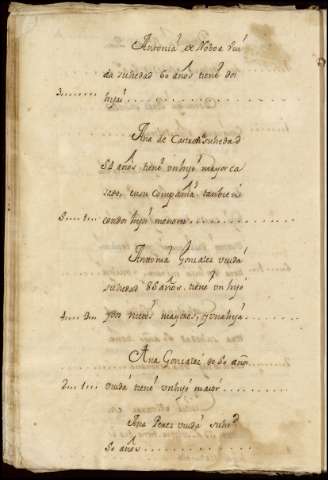 Antonia de Noboa viu
da su hedad 60 años tiene dos
3 hijas
Ana de su hedad
54 años tiene un hijo mayor ca
sado, en su Compañia tambien
con dos hijos menores
Antonia Gonzales viuda
su hedad 86 años, tiene un hijo
4 dos nietos mayores, y una hija
Ana Gonzales de 80 años
2 1 viuda tiene un hijo maior
Ana Perez viuda su hed
50 años